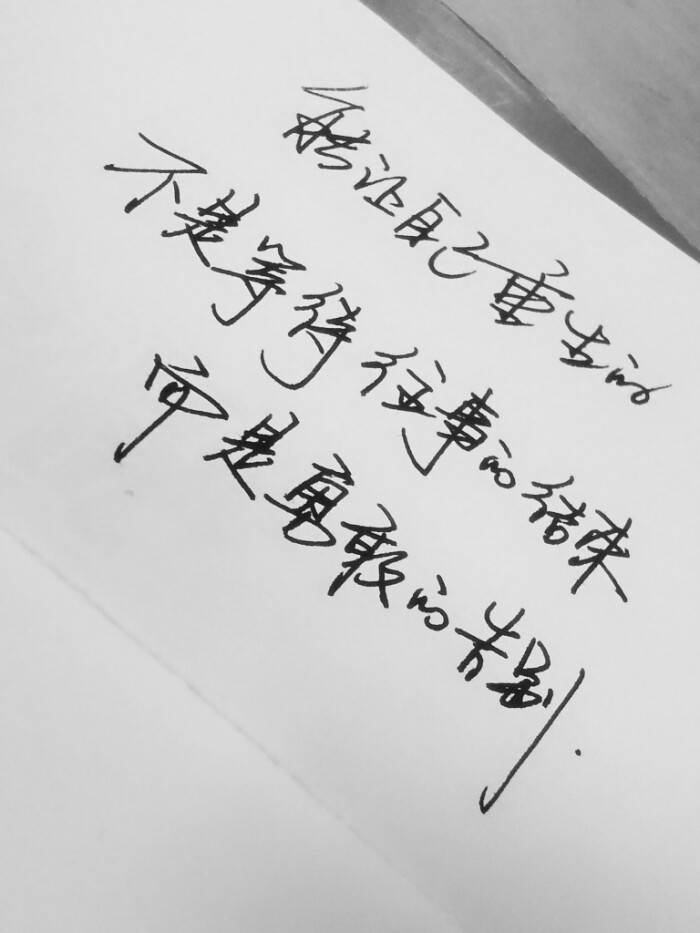 能让自己重生的
不是等待往事的结束
而是勇敢的告别.